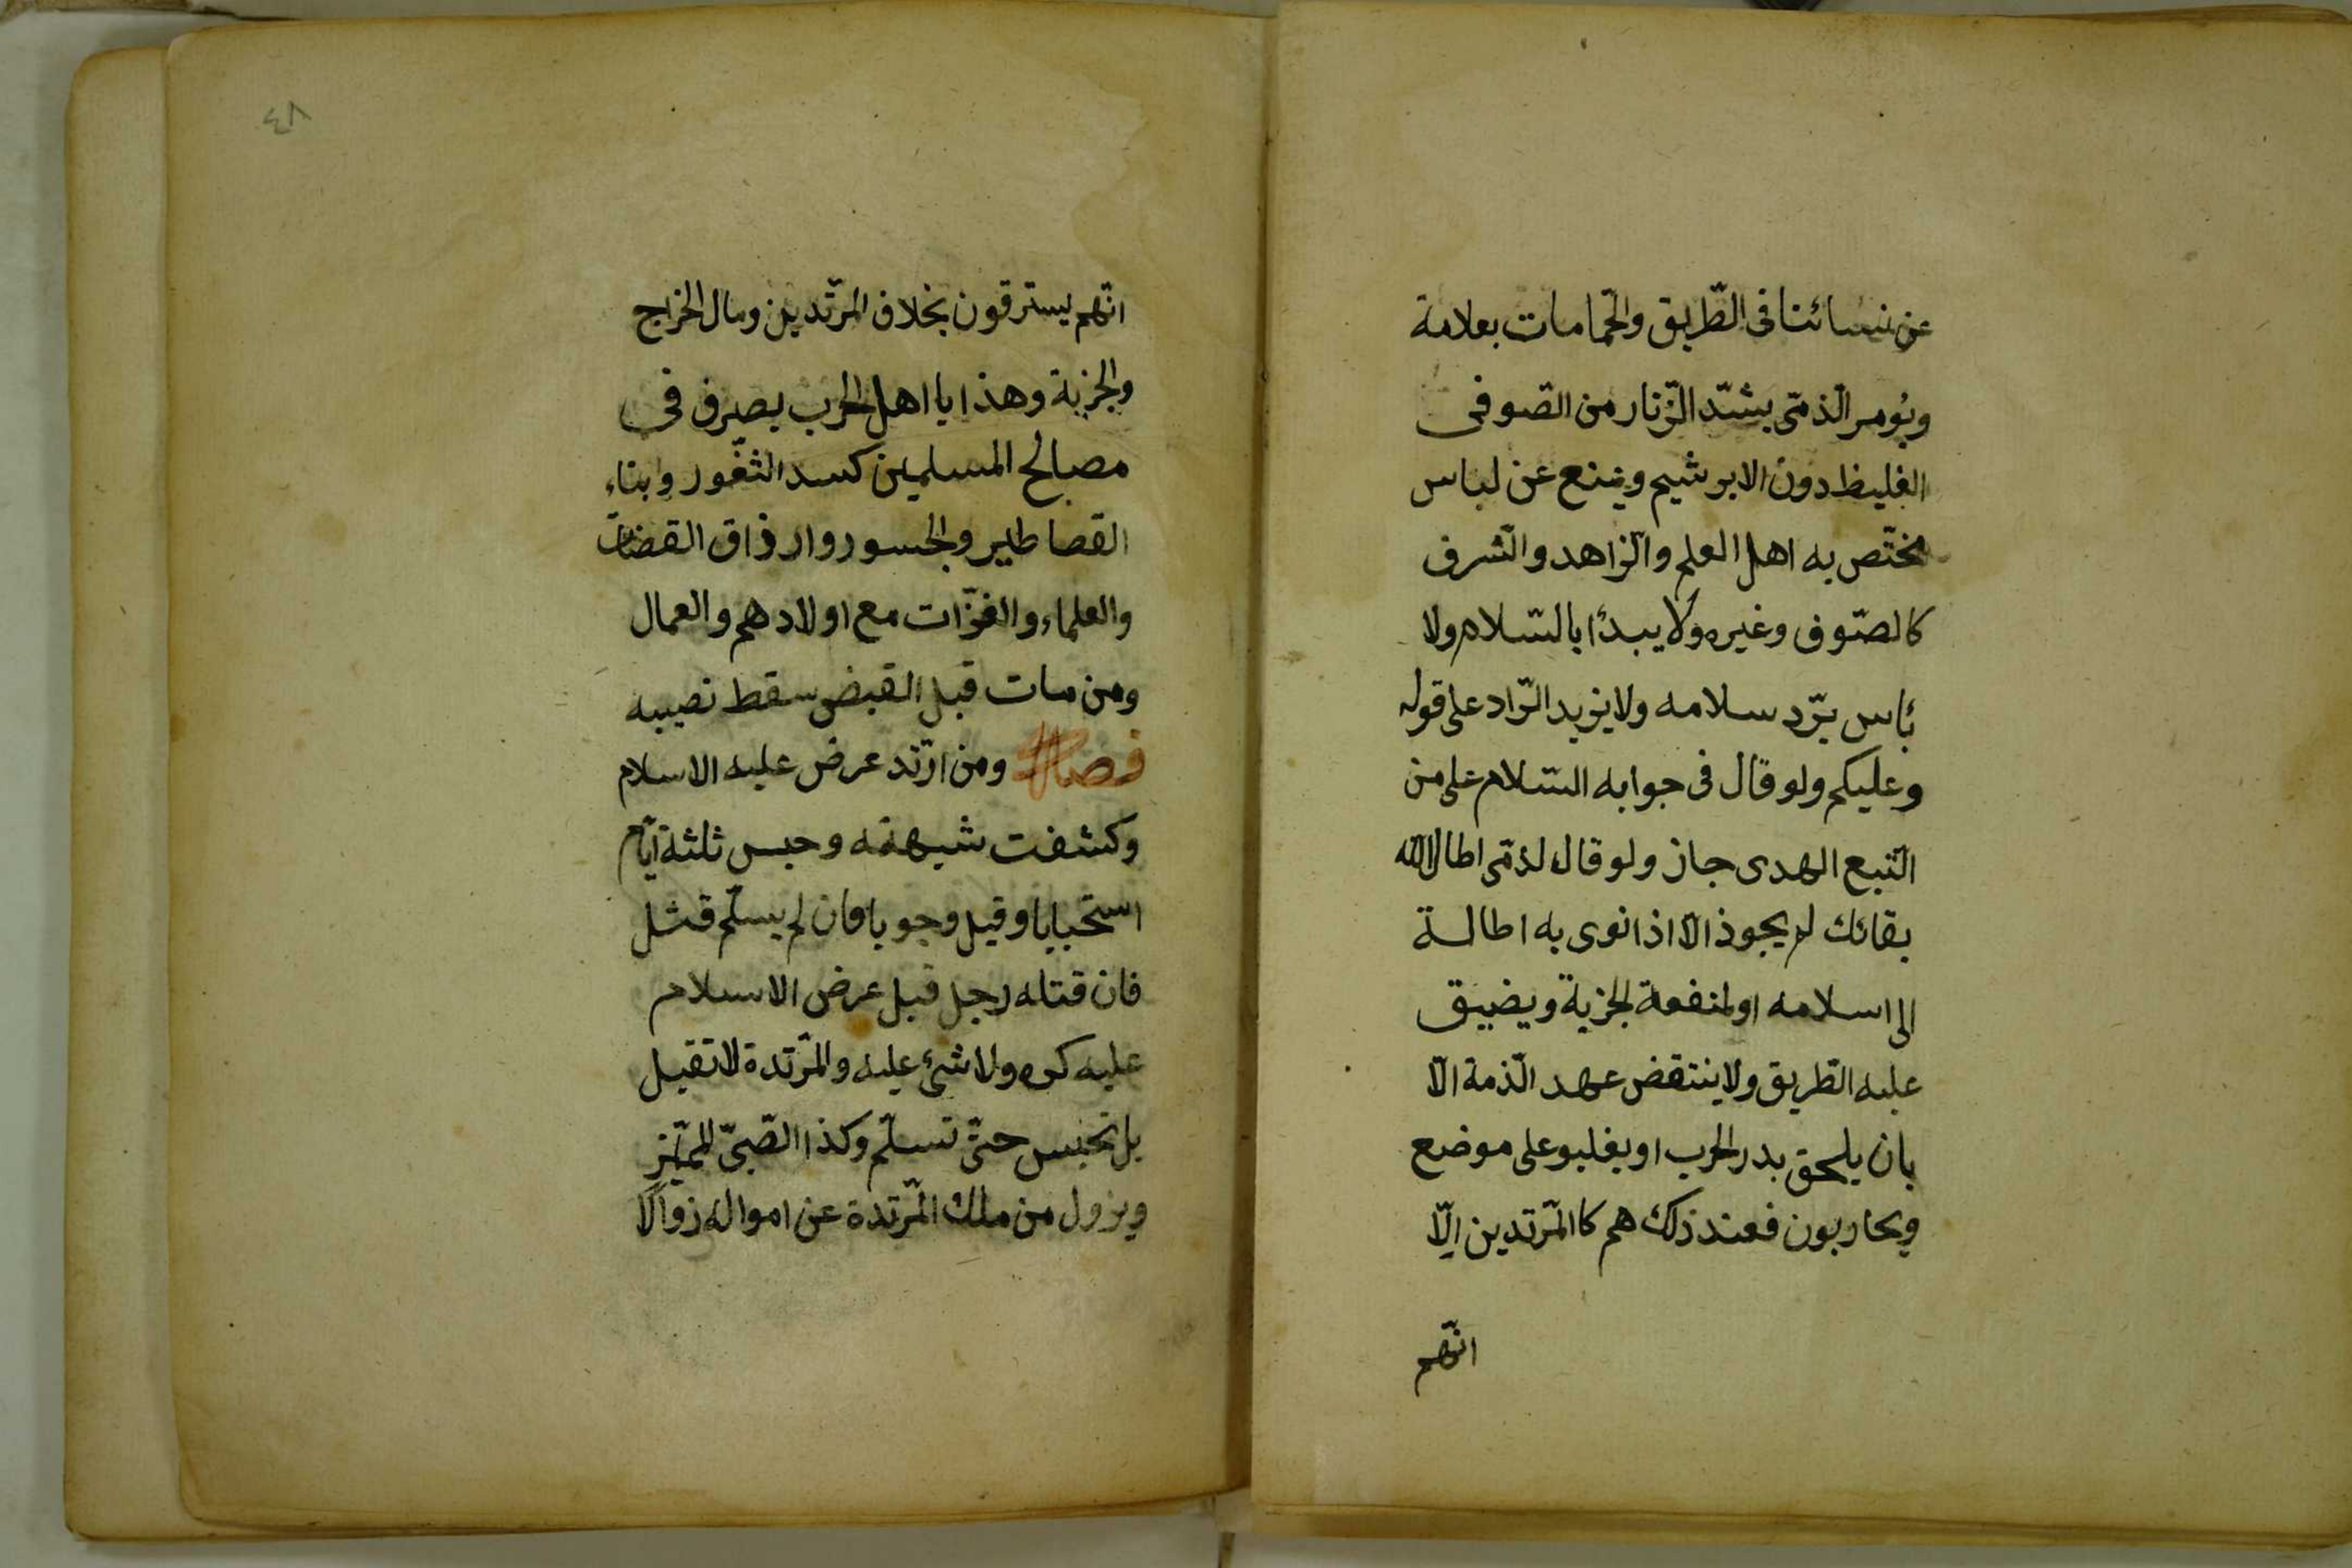 عن نسائنا فى الطّريق والحمّامات بعلامة
ويُومر الذمّى بشدّ الزّنار من الصّوفى
الغليظ دون الابرشيم ويمنع عن لباس
مختّص به اهل العلم والزّاهد والشّرف
كالصّوف وغيره ولا يبدأ بالسّلام ولا
بأس برّد سلامه ولا يزيد الرّاد على قوله
وعليكم ولو قال فى جوابه السّلام على من
اتّبع الهدى جاز ولو قال لذمّى اطال الله
بقائك لم يجوذ الّا اذا نوى به اطالة
الى اسلامه او لمنفعة الجزية ويضيق
عليه الطّريق ولا ينتقض عهد الذّمة الّا
بان يلحق بدر الحرب او يغلبو على موضع
ويحاربون فعند ذلك هم كالمّرتدين الّا
انّهم
٤٨
انّهم يسترقون بخلاف المرتّدين ومال الخراج
والجزية وهذايا اهل الحرب يصرف فى
مصالح المسلمين كسد الثغّور وبناء
القصاطير والجسور وارذاق القضات
والعلماء والغزّات مع اولادهم والعمال
ومن مات قبل القبض سقط نصيبه
فصل ومن ارتّد عرض عليه الاسلام
وكشفت شبهته وحبس ثلثة ايّام
استحبابا وقيل وجوبا فان لم يسلّم قتل
فان قتله رجل قبل عرض الاسلام
عليه كره ولا شئ عليه والمّرتدة لا تقيل
بل تحبس حتىّ تسلّم وكذا الصّبىّ المميّز
ويزول من ملك المّرتدة عن امواله زوالًا